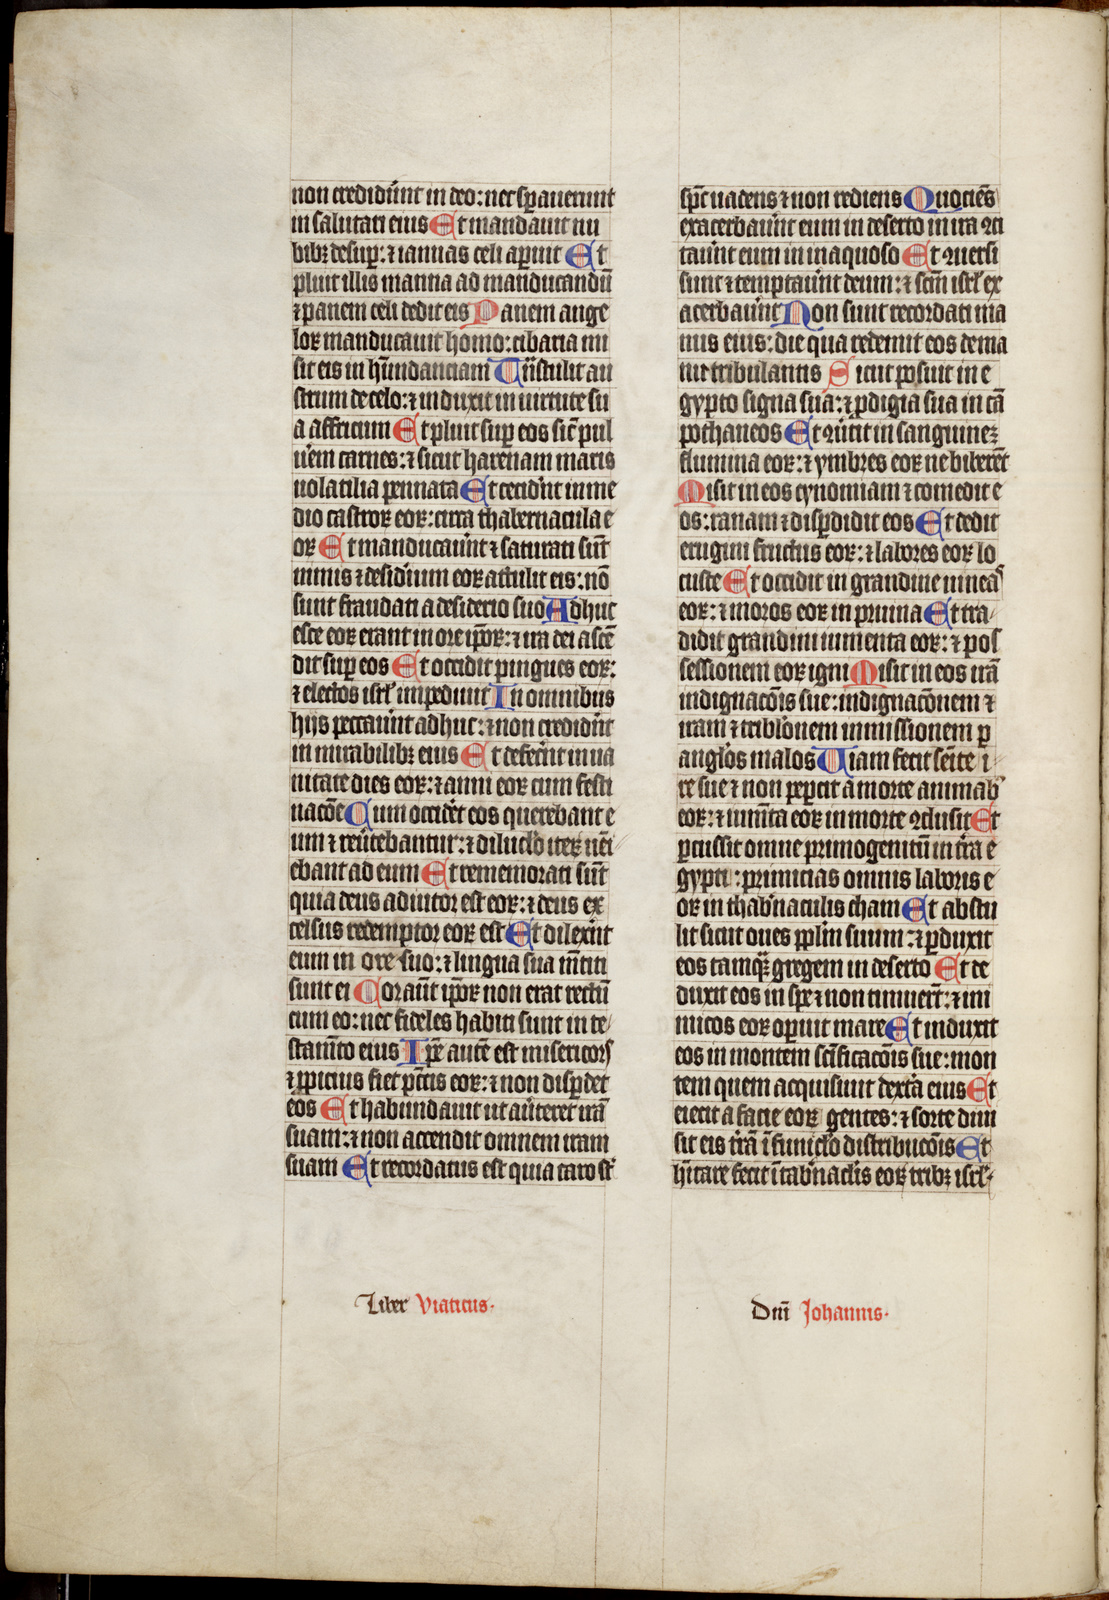 non crediderunt in deo: nec sperauerunt
in salutari eius Et mandauit nu
bibꝫ desuꝑ: ⁊ ianuas celi aperuit Et
pluit illis manna ad manducandū
⁊ panem celi dedit eis Panem ange
loꝝ manducauit homo: cibaria mi
sit eis in hundanciam Transtulit au
strum de celo: ⁊ induxit in uirtute su
a affricum Et pluit suꝑ eos sic̄ pul
uerem carnes: ⁊ sicut harenam maris
uolatilia pennata Et cecider̄t in me
dio castroꝝ eoꝝ: circa thabernacula e
oꝝ Et manducauer̄t ⁊ saturati sūt
nimis ⁊ desideriū eoꝝ attulit eis: nō
sunt fraudati a desiderio suo Adhuc
esce eoꝝ erant in ore ip̄oꝝ: ⁊ ira dei ascē
dit suꝑ eos Et occidit pingues eoꝝ:
⁊ electos isrl̄ impediuit In omnibus
hijs peccauer̄t adhuc: ⁊ non credider̄t
in mirabilibꝫ eius Et defecer̄t in ua
nitate dies eoꝝ: ⁊ anni eoꝝ cum festi
nacōe Cum occider̄et eos querebant e
um ⁊ reuertebantur: ⁊ diluclo iterꝫ ueī
ebant ad eum Et rememorati sūt
quia deus adiutor est eoꝝ: ⁊ deus ex
celsus redemptor eoꝝ est Et dilexer̄t
eum in ore suo: ⁊ lingua sua m̄titi
sunt ei Cor aūt ip̄oꝝ non erat rectū
cum eo: nec fideles habiti sunt in te
stam̄to eius Ip̄e autē est misericors
⁊ ꝓpicius fiet pc̄tis eoꝝ: ⁊ non disꝑdet
eos Et habundauit ut au̓teret irā
suam: ⁊ non accendit omnem iram
suam Et recordatus est quia caro sт̄
sp̄c uadens ⁊ non rediens Quociēs
exacerbauer̄t eum in deserto in ira ꝯci
tauer̄t eum in inaquoso Et ꝯuersi
sunt ⁊ temptauer̄t deum: ⁊ scm̄ isrl̄ ex
acerbauer̄t Non sunt recordati ma
nus eius: die qua redemit eos de ma
nu tribulantis Sicut posuit in e
gypto signa suā: ⁊ ꝓdigia sua in cā
po thaneos Et ꝯuertit in sanguinēꝫ
flumina eoꝝ: ⁊ ymbres eoꝝ ne biberēt
Misit in eos cynomiam ⁊ comedit e
os: ranam ⁊ disꝑdidit eos Et dedit
erugini fructus eoꝝ: ⁊ labores eoꝝ lo
custe Et occidit in grandine uineas
eoꝝ: ⁊ moros eoꝝ in pruina Et tra
didit grandini iumenta eoꝝ: ⁊ pos
sessionem eoꝝ igni Misit in eos irā
indignacōis sue: indignacōnem ⁊
iram ⁊ tribl̄onem inmissionem ꝑ
anglos malos Uiam fecit semite i
re sue ⁊ non peꝑcit a morte animabꝰ
eoꝝ: ⁊ ium̄ta eoꝝ in morte ꝯclusit Et
ꝑcussit omne primogenitū in tra e
gypti: primicias omnis laboris e
oꝝ in thab̓naculis cham Et abstu
lit sicut oues ppl̄m suum: ⁊ ꝑduxit
eos tamqꝫ gregem in deserto Et de
duxit eos in spe ⁊ non timuer̄t: ⁊ ini
micos eoꝝ operuit mare Et induxit
eos in montem scīficacōis sue: mon
tem quem acquisiuit dextra eius Et
eiecit a facie eoꝝ gentes: ⁊ sorte diui
sit eis trā ī funiclo distribucōis Et
hītare fecit ī tab̓naclis eoꝝ tribꝫ isrl̄
Liber Viaticus.
Dn̄i Johannis.